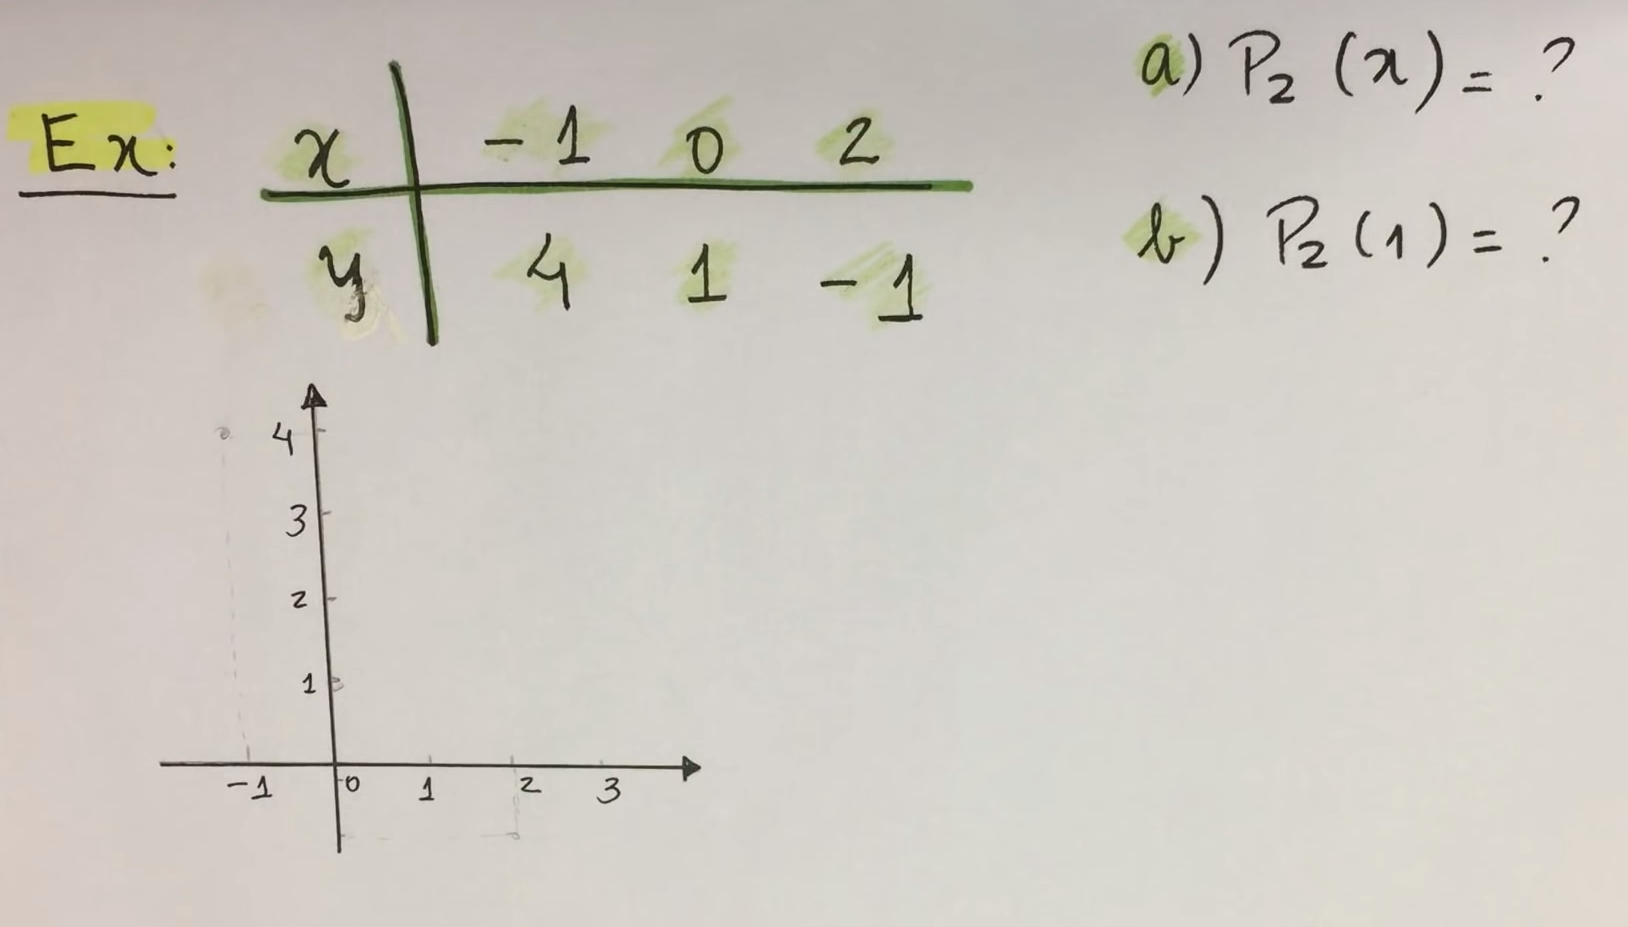 Ex:
x -1 0 2
y 4 1 -1
a) P₂ (x) = ?
b) P₂ (1) = ?
4
3
2
1
-1 0 1 2 3